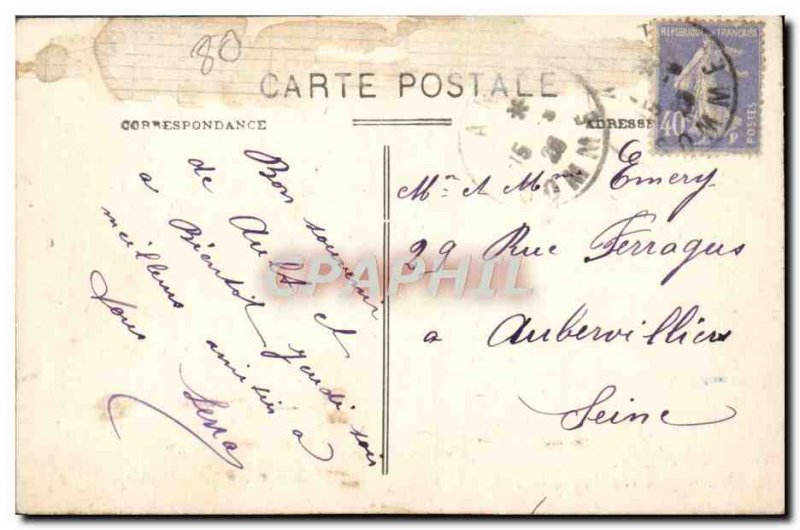 80
CARTE POSTALE
CORRESPONDANCE
ADRESSE
REPUBLIQUE FRANÇAISE
40
POSTES
Bon souvenir
de Ault et
a Bientôt jeudi soir
meilleurs amitiés a
tous
Mr et Mme Emery
39 Rue Ferragus
a Aubervilliers
Seine
CPAPHIL